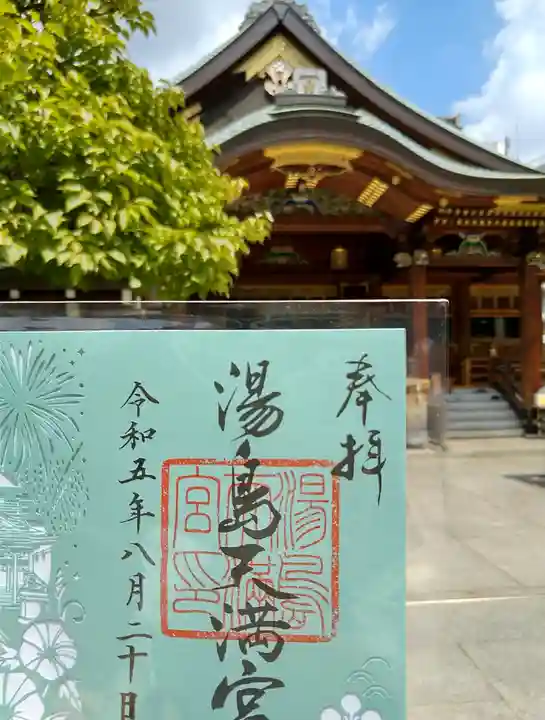 奉拝
湯島天満宮
令和五年八月二十日
湯島天満宮印